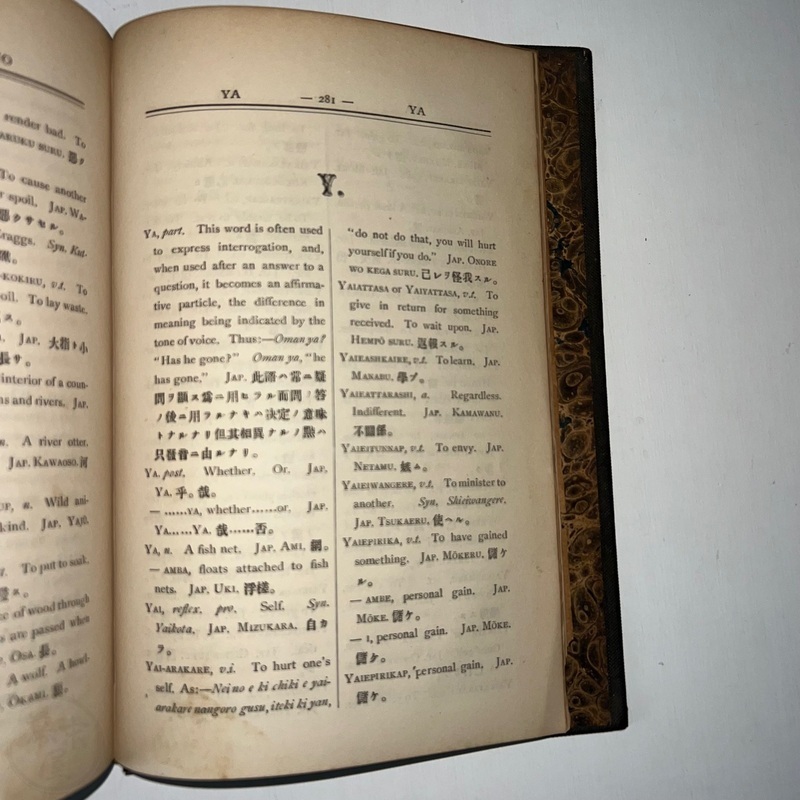 render bad. To
ARUKU SURU. 惡ク
To cause another
r spoil. JAP. WA-
惡クサセル。
raggs. Syn. Kut-
-KOKIRU, v.t. To
oil. To lay waste.
JAP. 大指ト小
長サ。
interior of a coun-
ns and rivers. JAP.
n. A river otter.
JAP. KAWAOSO. 河
UP, n. Wild ani-
kind. JAP. YAJŪ.
To put to soak.
ce of wood through
s are passed when
P. OSA. 長。
A wolf. A howl-
OKAMI. 狼。
YA — 281 — YA
Y.
YA, part. This word is often used
to express interrogation, and,
when used after an answer to a
question, it becomes an affirma-
tive particle, the difference in
meaning being indicated by the
tone of voice. Thus:—Oman ya?
"Has he gone?" Oman ya, "he
has gone." JAP. 此語ハ常ニ疑
問ヲ顯ス爲ニ用ヒラル而問ノ答
ノ後ニ用フルナキハ決定ノ意味
トナルナリ但其相異ナルノ點ハ
只發音ニ由ルナリ。
YA, post. Whether. Or. JAP.
YA. 乎。哉。
— ......YA, whether......or. JAP.
YA......YA. 哉......否。
YA, n. A fish net. JAP. AMI. 網。
— AMBA, floats attached to fish
nets. JAP. UKI. 浮樣。
YAI, reflex. pro. Self. Syn.
Yaikota. JAP. MIZUKARA. 自カ
ラ。
YAI-ARAKARE, v.i. To hurt one's
self. As:—Nei no e ki chiki e yai-
arakare nangoro gusu, iteki ki yan,
"do not do that, you will hurt
yourself if you do." JAP. ONORE
WO KEGA SURU. 己レヲ怪我スル。
YAIATTASA or YAIYATTASA, v.t. To
give in return for something
received. To wait upon. JAP.
HEMPŌ SURU. 返報スル。
YAIEASHKAIRE, v.t. To learn. JAP.
MANABU. 學ブ。
YAIEATTARASHI, a. Regardless.
Indifferent. JAP. KAMAWANU.
不關係。
YAIEITUNNAP, v.t. To envy. JAP.
NETAMU. 嫉ム。
YAIEIWANGERE, v.t. To minister to
another. Syn. Shieiwangere.
JAP. TSUKAERU. 使ヘル。
YAIEPIRIKA, v.t. To have gained
something. JAP. MŌKERU. 儲ケ
ル。
— AMBE, personal gain. JAP.
MŌKE. 儲ケ。
— I, personal gain. JAP. MŌKE.
儲ケ。
YAIEPIRIKAP, personal gain. JAP.
儲ケ。